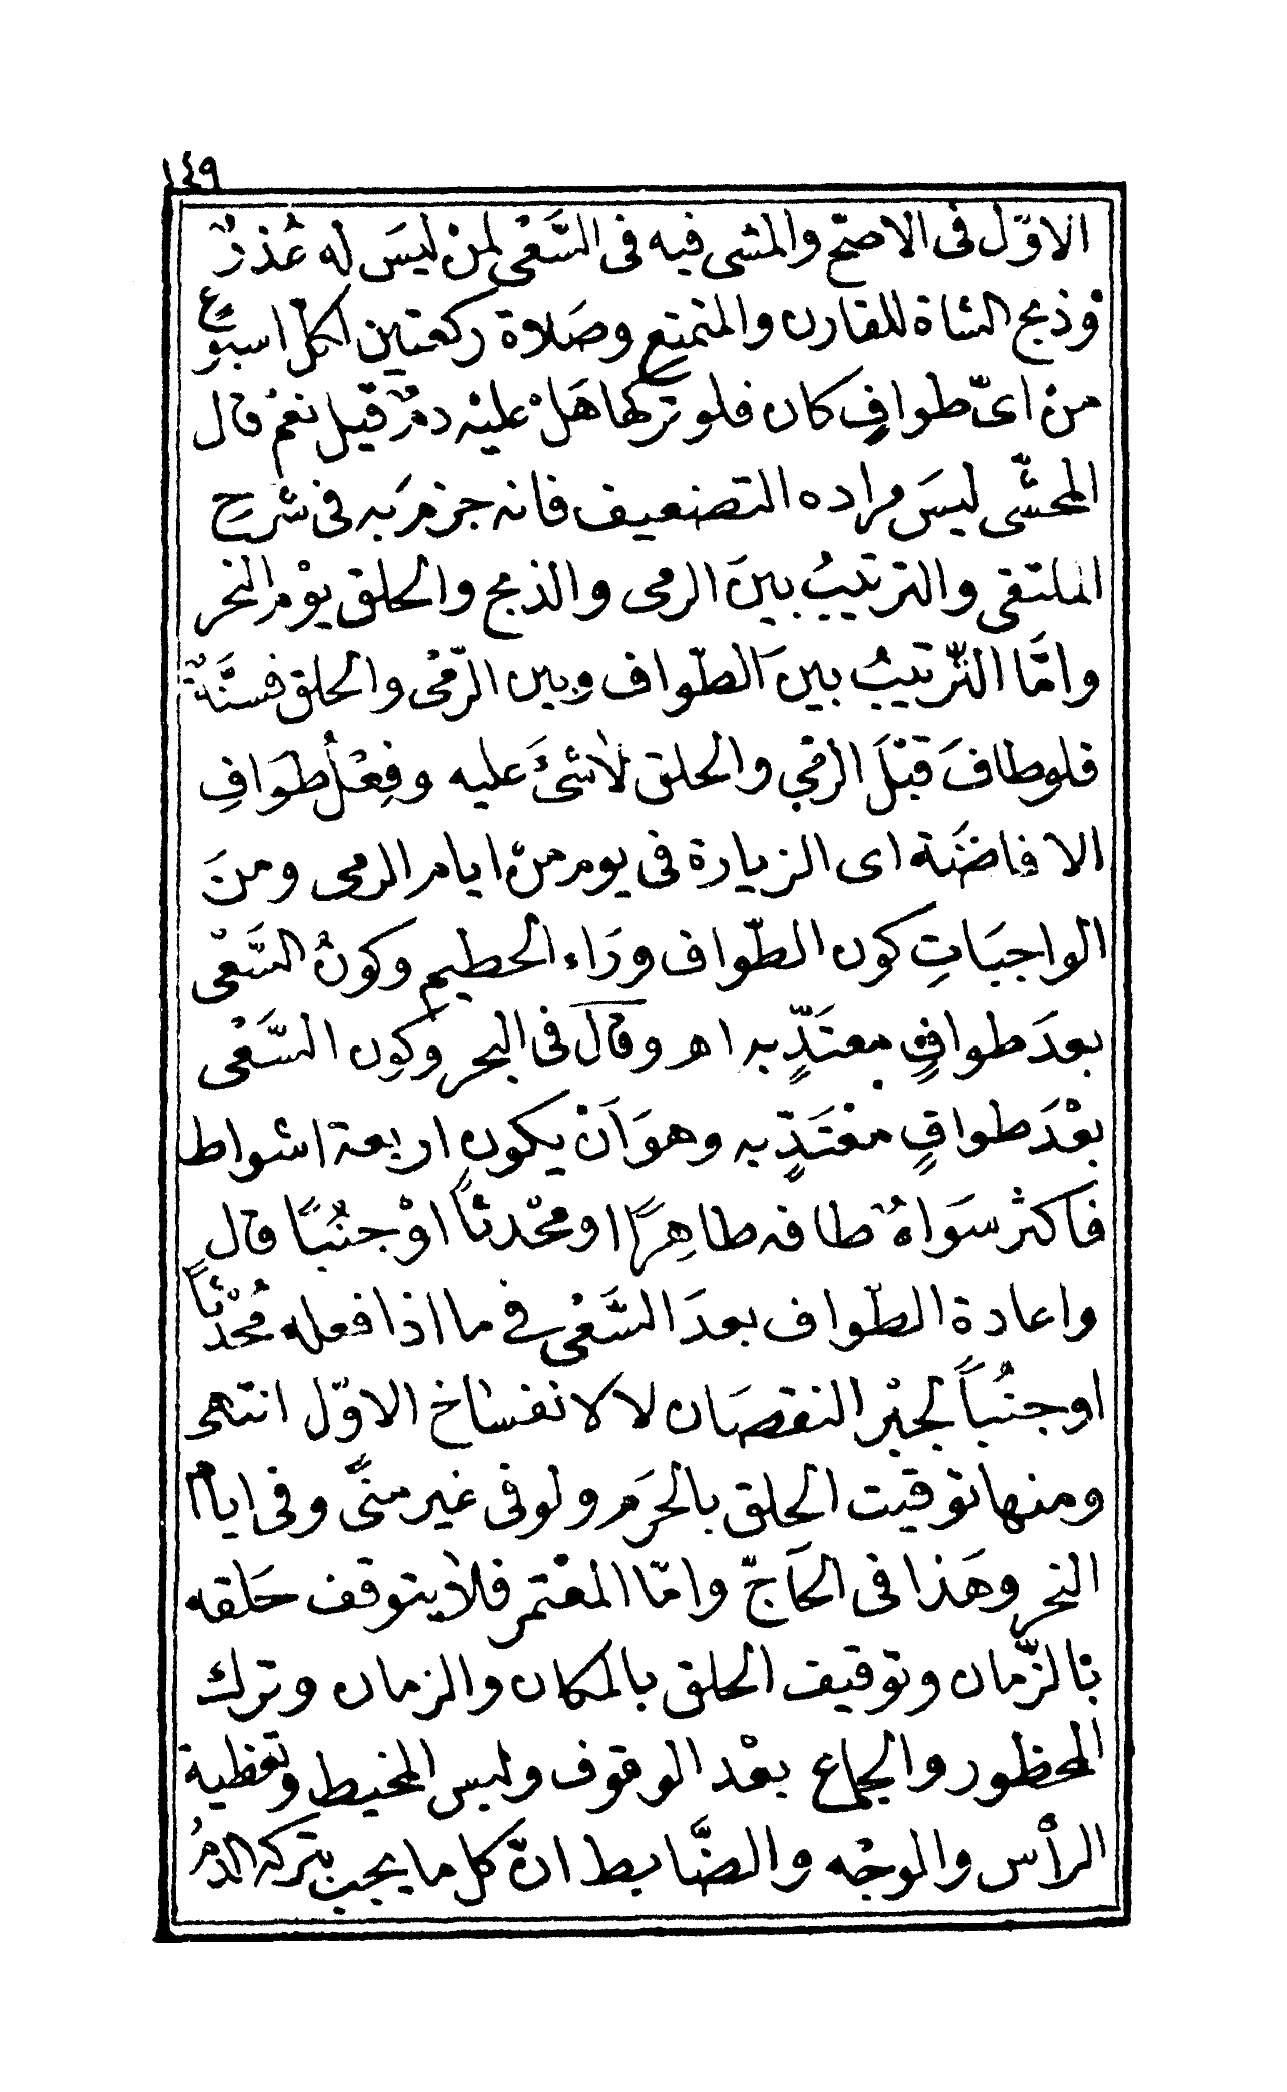 ١٤٩
الاوّل فى الاصحّ والمشى فيه فى السَّعْى لمنْ ليسَ له عُذرٌ
وذبح الشاة للقارن والمتمتع وصَلاة ركعتين لكلّ اسبوعٍ
منْ اىّ طوافٍ كان فلو تركها هَلْ عليْه دمٌ قيل نعمْ قال
المحشّى ليسَ مراده التضعيف فانه جزمَ به فى شرحِ
الملتقى والترتيبُ بينَ الرمى والذبح والحلق يوْم النحر
وامَّا التّرتيبُ بينَ الطّواف وبين الرّمْى والحلق فسنَّةٌ
فلوطافَ قبْلَ الرمْي والحلق لاشئَ عليه وفِعْلُ طوَافِ
الافاضَة اى الزيارة فى يوم منْ ايام الرمى ومنَ
الواجبَاتِ كون الطّواف ورَاء الحطيم وكونُ السَّعْى
بعدَ طوافٍ معتَدٍّ به اهـ وقال فى البحر وكون السَّعْى
بعْدَ طوافٍ معْتَدٍّ به وهوَ انْ يكون اربعة اشواط
فاكثر سوَاءٌ طافه طاهِرًا او محْدثاً اوْ جنُبًا قال
واعادة الطّواف بعدَ السَّعْى فى ما اذا فعله مُحْدثاً
اوجنُباً لجبْر النقصَان لا لانفساخ الاوّل انتهى
ومنها توقيت الحلق بالحرَم ولوفى غير منًى وفى ايام
النحر وهَذا فى الحَاجّ وامّا المعْتمر فلا يتوقف حَلقه
بالزّمان وتوقيف الحلق بالمكان والزمان وترك
المحظور والجماع بعْد الوقوف ولبس المخيط وتغطية
الرأس والوجْه والضَّابط انّ كل ما يجب بتركه الدمُ